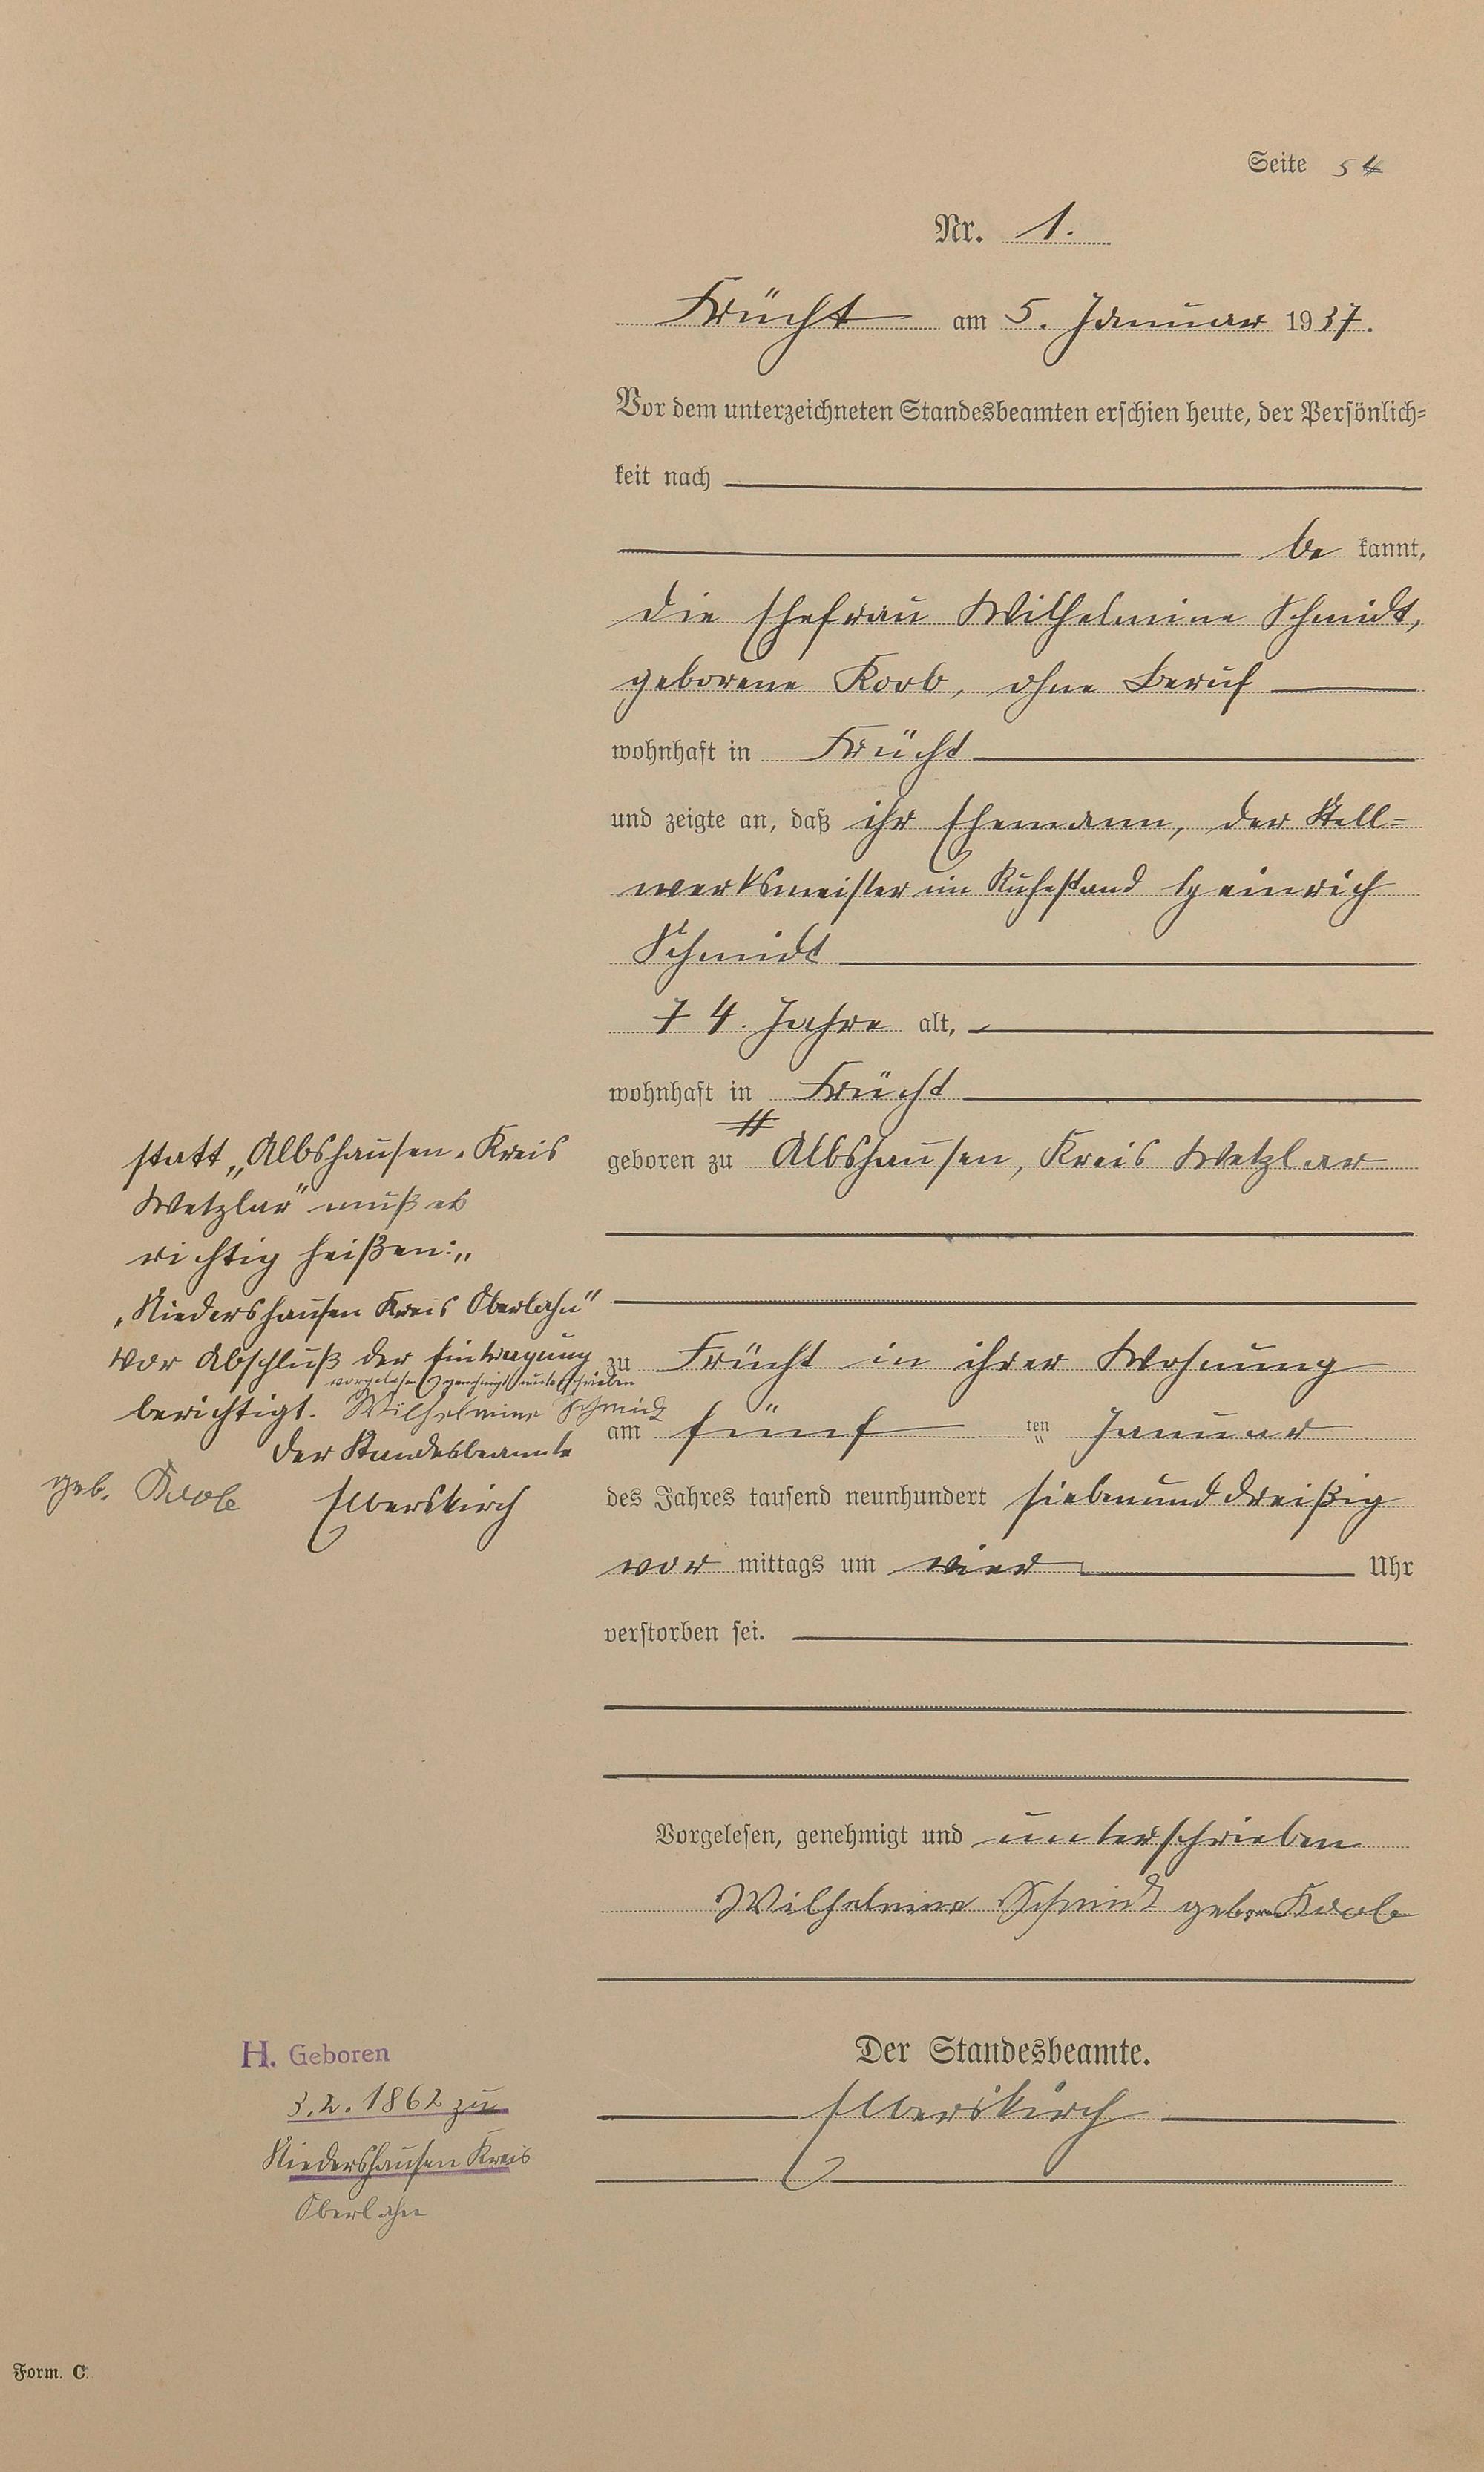 Seite 54
Nr. 1.
Frücht am 5. Januar 1937.
Vor dem unterzeichneten Standesbeamten erschien heute, der Persönlich-
keit nach
be kannt,
die Ehefrau Wilhelmine Schmidt,
geborene Korb, ohne Beruf
wohnhaft in Frücht
und zeigte an, daß ihr Ehemann, der Stell-
werksmeister im Ruhestand Heinrich
Schmidt
74 Jahre alt,
wohnhaft in Frücht
geboren zu Albshausen, Kreis Wetzlar
statt „Albshausen, Kreis
Wetzlar" muß es
richtig heißen:„
„Niedershausen Kreis Oberlahn"
Vor Abschluß der Eintragung
vorgelesen genehmigt unterschrieben
berichtigt. Wilhelmine Schmidt
Der Standesbeamte
geb. Korb Elberskirch
zu Frücht in ihrer Wohnung
am fünf ten Januar
des Jahres tausend neunhundert siebenunddreißig
vor mittags um vier Uhr
verstorben sei.
Vorgelesen, genehmigt und unterschrieben
Wilhelmine Schmidt geboren Korb
Der Standesbeamte.
Elberskirch
H. Geboren
3.2.1862 zu
Niedershausen Kreis
Oberlahn
Form. C.